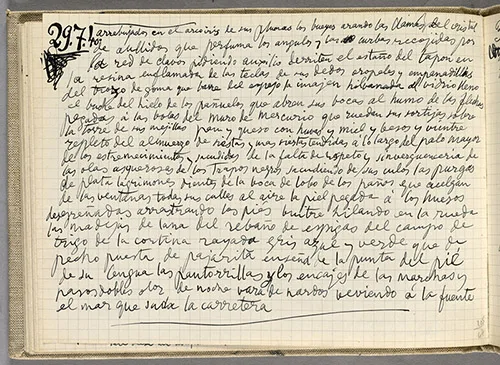 29.7.40.
arrebujados en el arco iris de sus plumas los bueyes arando las llamas del cristal
de aullidos que perfuma los angulos y las curbas recojidas por
la red de clavos pidiendo auxilio derriten el estaño del tapon en
la resina enllamada de las teclas de sus dedos
del trozo de goma que barre del espejo la imajen del vidrio lleno
el buche del hielo de los pañuelos que abren sus bocas al humo de las
pegadas á las bolas del muro de mercurio que ruedan sus sortijas sobre
la torre de sus mejillas pan y queso con huevos y miel y besos y vientre
repleto del almuerzo de siestas y mas siestas tendidas á lo largo del palo mayor
de los estremecimientos y sacudidas de la falta de respeto y sinverguenceria de
las olas asquerosas de los trapos negros sacudiendo de sus culos las purgas
de plata lagrimones pientes de la boca de lobo de los paños que cuelgan
de las ventanas todas sus calles al aire la piel pegada á los huesos
desgreñadas arrastrando los pies buitre hilando en la rueda
las madejas de lana del rebaño de espigas del campo de
trigo de la cortina rayada gris azul y verde que de
pecho puesta de pajarita enseña la punta del pié
de su lengua las pantorrillas y los encajes de las marchas y
pasos dobles olor de noche vara de nardos beviendo á la fuente
el mar que suda la carretera